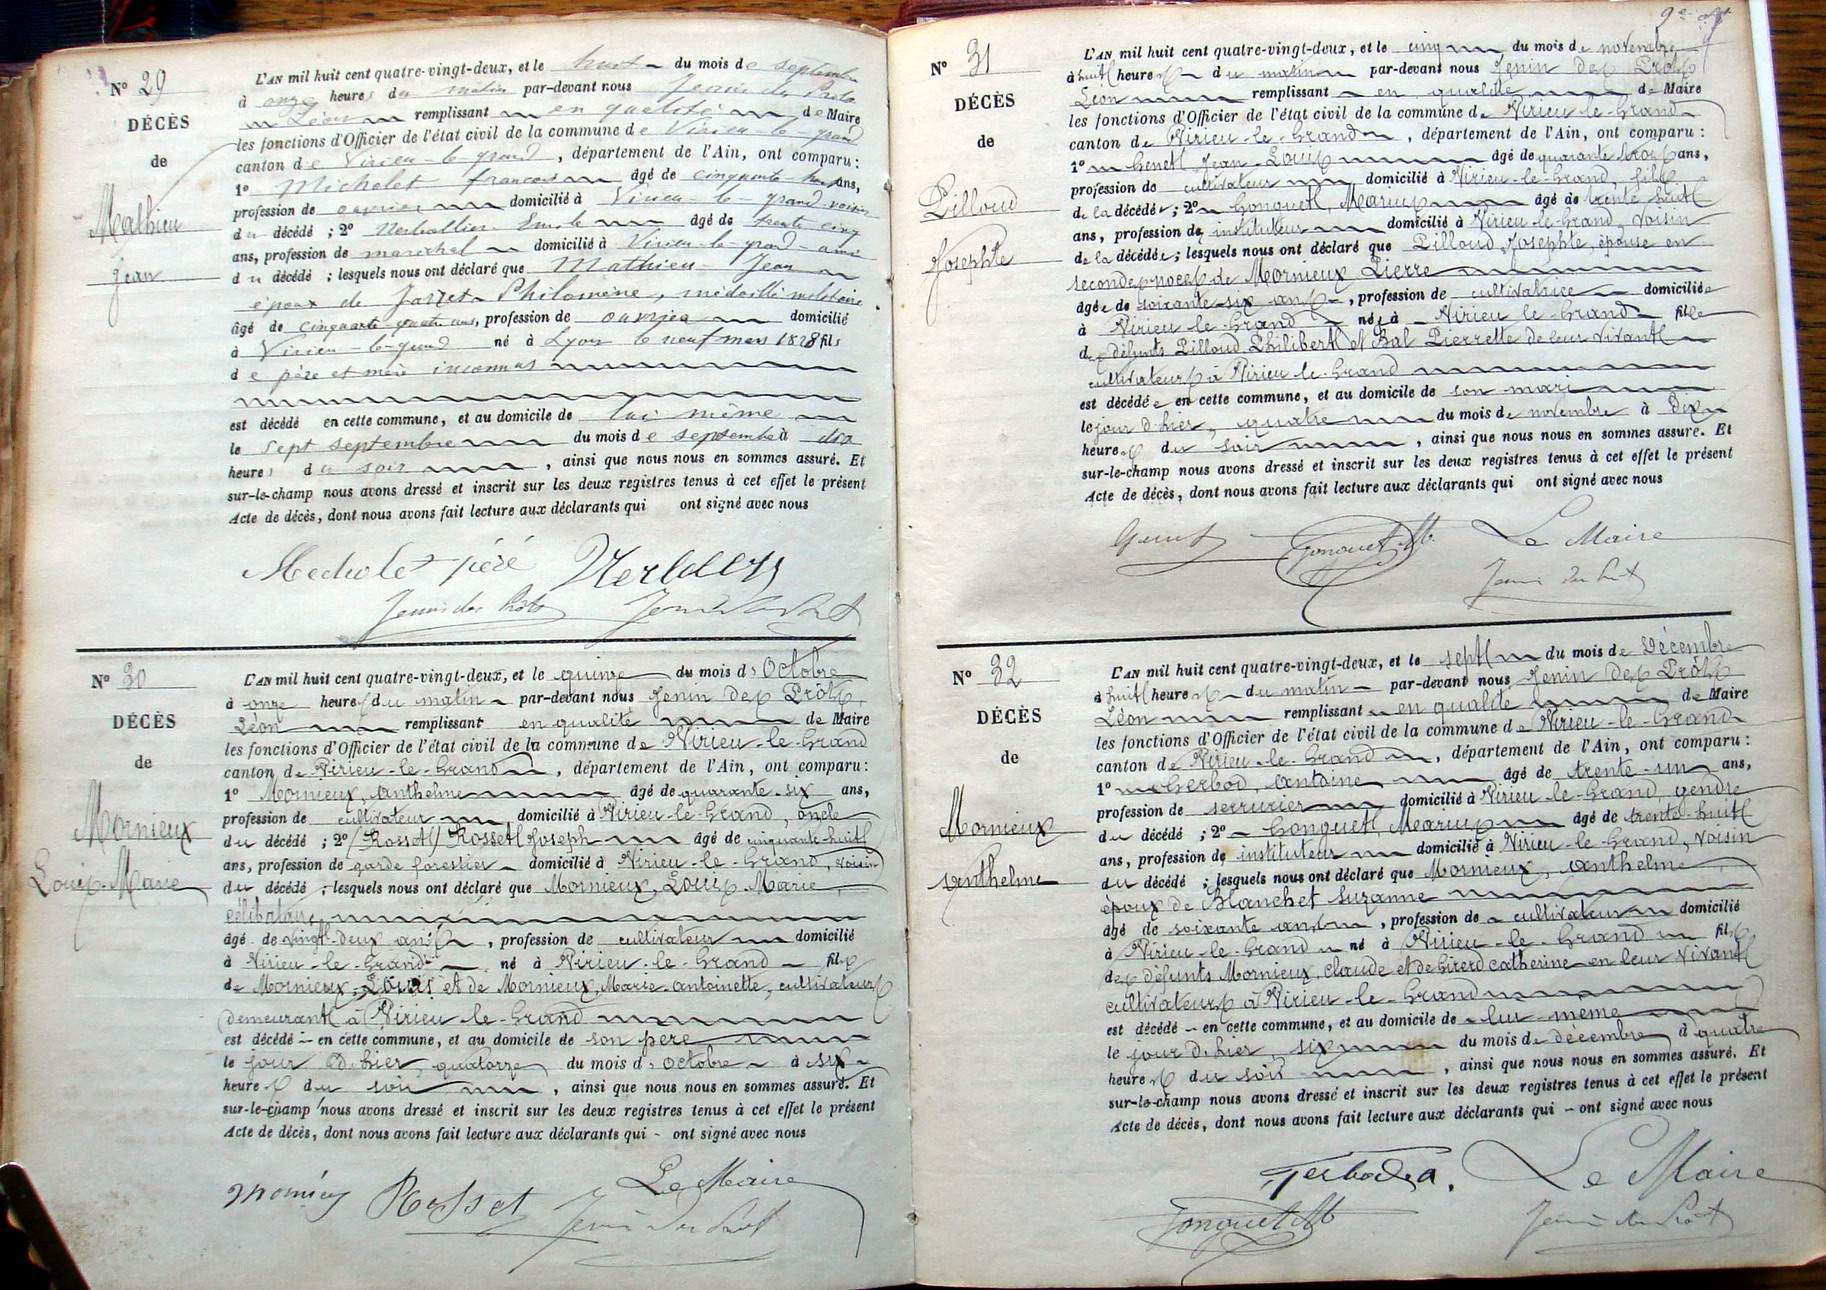 N° 29
DÉCÈS
de
Mathieu
Jean
L'AN mil huit cent quatre-vingt-deux, et le huit du mois de septembre
à onze heures du matin par-devant nous Jenin des Prots
Léon remplissant en qualité de Maire
les fonctions d'Officier de l'état civil de la commune de Virieu-le-grand
canton de Virieu-le-grand, département de l'Ain, ont comparu :
1° Micholet francois âgé de cinquante-huit ans,
profession de ouvrier domicilié à Virieu-le-grand voisin
du décédé ; 2° Emile âgé de trente cinq
ans, profession de marechal domicilié à Virieu-le-grand ami
du décédé ; lesquels nous ont déclaré que Mathieu Jean
époux de Philomène, médaillé militaire
âgé de cinquante quatre ans, profession de ouvrier domicilié
à Virieu-le-grand né à Lyon le neuf mars 1828 fils
de père et mère inconnus
est décédé en cette commune, et au domicile de lui même
le sept septembre du mois de septembre à dix
heures du soir, ainsi que nous nous en sommes assuré. Et
sur-le-champ nous avons dressé et inscrit sur les deux registres tenus à cet effet le présent
Acte de décès, dont nous avons fait lecture aux déclarants qui ont signé avec nous
Micholet père
Jenin des Prots
N° 30
DÉCÈS
de
Mornieux
Louis-Marie
L'AN mil huit cent quatre-vingt-deux, et le quinze du mois d'Octobre
à onze heures du matin par-devant nous Jenin des Prôts,
Léon remplissant en qualité de Maire
les fonctions d'Officier de l'état civil de la commune de Virieu-le-Grand
canton de Virieu-le-Grand, département de l'Ain, ont comparu :
1° Mornieux, Anthelme âgé de quarante-six ans,
profession de cultivateur domicilié à Virieu-le-Grand, oncle
du décédé ; 2° (Rosset) Rosset Joseph âgé de cinquante-huit
ans, profession de garde forestier domicilié à Virieu-le-Grand, voisin
du décédé ; lesquels nous ont déclaré que Mornieux, Louis Marie,
célibataire,
âgé de vingt-deux ans, profession de cultivateur domicilié
à Virieu-le-Grand né à Virieu-le-Grand fils
de Mornieux, Louis et de Mornieux, Marie-Antoinette, cultivateurs
demeurant à Virieu-le-Grand
est décédé en cette commune, et au domicile de son père
le jour d'hier, quatorze du mois d'octobre à six
heures du soir, ainsi que nous nous en sommes assuré. Et
sur-le-champ nous avons dressé et inscrit sur les deux registres tenus à cet effet le présent
Acte de décès, dont nous avons fait lecture aux déclarants qui ont signé avec nous
Le Maire
Rosset
N° 31
DÉCÈS
de
Pilloud
Josephte
L'AN mil huit cent quatre-vingt-deux, et le cinq du mois de novembre
à huit heures du matin par-devant nous Jenin des Prôts
Léon remplissant en qualité de Maire
les fonctions d'Officier de l'état civil de la commune de Virieu-le-Grand
canton de Virieu-le-Grand, département de l'Ain, ont comparu :
1° Genet Jean-Louis âgé de quarante trois ans,
profession de cultivateur domicilié à Virieu-le-Grand, fils
de la décédée ; 2° Gonguet, Marius âgé de trente huit
ans, profession de instituteur domicilié à Virieu-le-Grand, voisin
de la décédée ; lesquels nous ont déclaré que Pilloud, Josephte, épouse en
secondes noces de Mornieux Pierre
âgée de soixante-six ans, profession de cultivatrice domiciliée
à Virieu-le-Grand née à Virieu le Grand fille
des défunts Pilloud, Philibert et Bal Pierrette de leur vivant
cultivateurs à Virieu-le-Grand
est décédée en cette commune, et au domicile de son mari
le jour d'hier, quatre du mois de novembre à dix
heures du soir, ainsi que nous nous en sommes assuré. Et
sur-le-champ nous avons dressé et inscrit sur les deux registres tenus à cet effet le présent
Acte de décès, dont nous avons fait lecture aux déclarants qui ont signé avec nous
Genet Gonguet M. Le Maire
N° 32
DÉCÈS
de
Mornieux
Anthelme
L'AN mil huit cent quatre-vingt-deux, et le sept du mois de Décembre
à huit heures du matin par-devant nous Jenin des Prôts
Léon remplissant en qualité de Maire
les fonctions d'Officier de l'état civil de la commune de Virieu-le-Grand
canton de Virieu-le-Grand, département de l'Ain, ont comparu :
1° Gerbod, Antoine âgé de trente-un ans,
profession de serrurier domicilié à Virieu-le-Grand, gendre
du décédé ; 2° Gonguet, Marius âgé de trente-huit
ans, profession de instituteur domicilié à Virieu-le-Grand, voisin
du décédé ; lesquels nous ont déclaré que Mornieux, Anthelme
époux de Blanchet Suzanne
âgé de soixante ans, profession de cultivateur domicilié
à Virieu-le-Grand né à Virieu-le-Grand fils
des défunts Mornieux, Claude et de Girerd Catherine en leur vivant
cultivateurs à Virieu-le-Grand
est décédé en cette commune, et au domicile de lui même
le jour d'hier, six du mois de décembre à quatre
heures du soir, ainsi que nous nous en sommes assuré. Et
sur-le-champ nous avons dressé et inscrit sur les deux registres tenus à cet effet le présent
Acte de décès, dont nous avons fait lecture aux déclarants qui ont signé avec nous
Gerbod A. Le Maire
Gonguet M